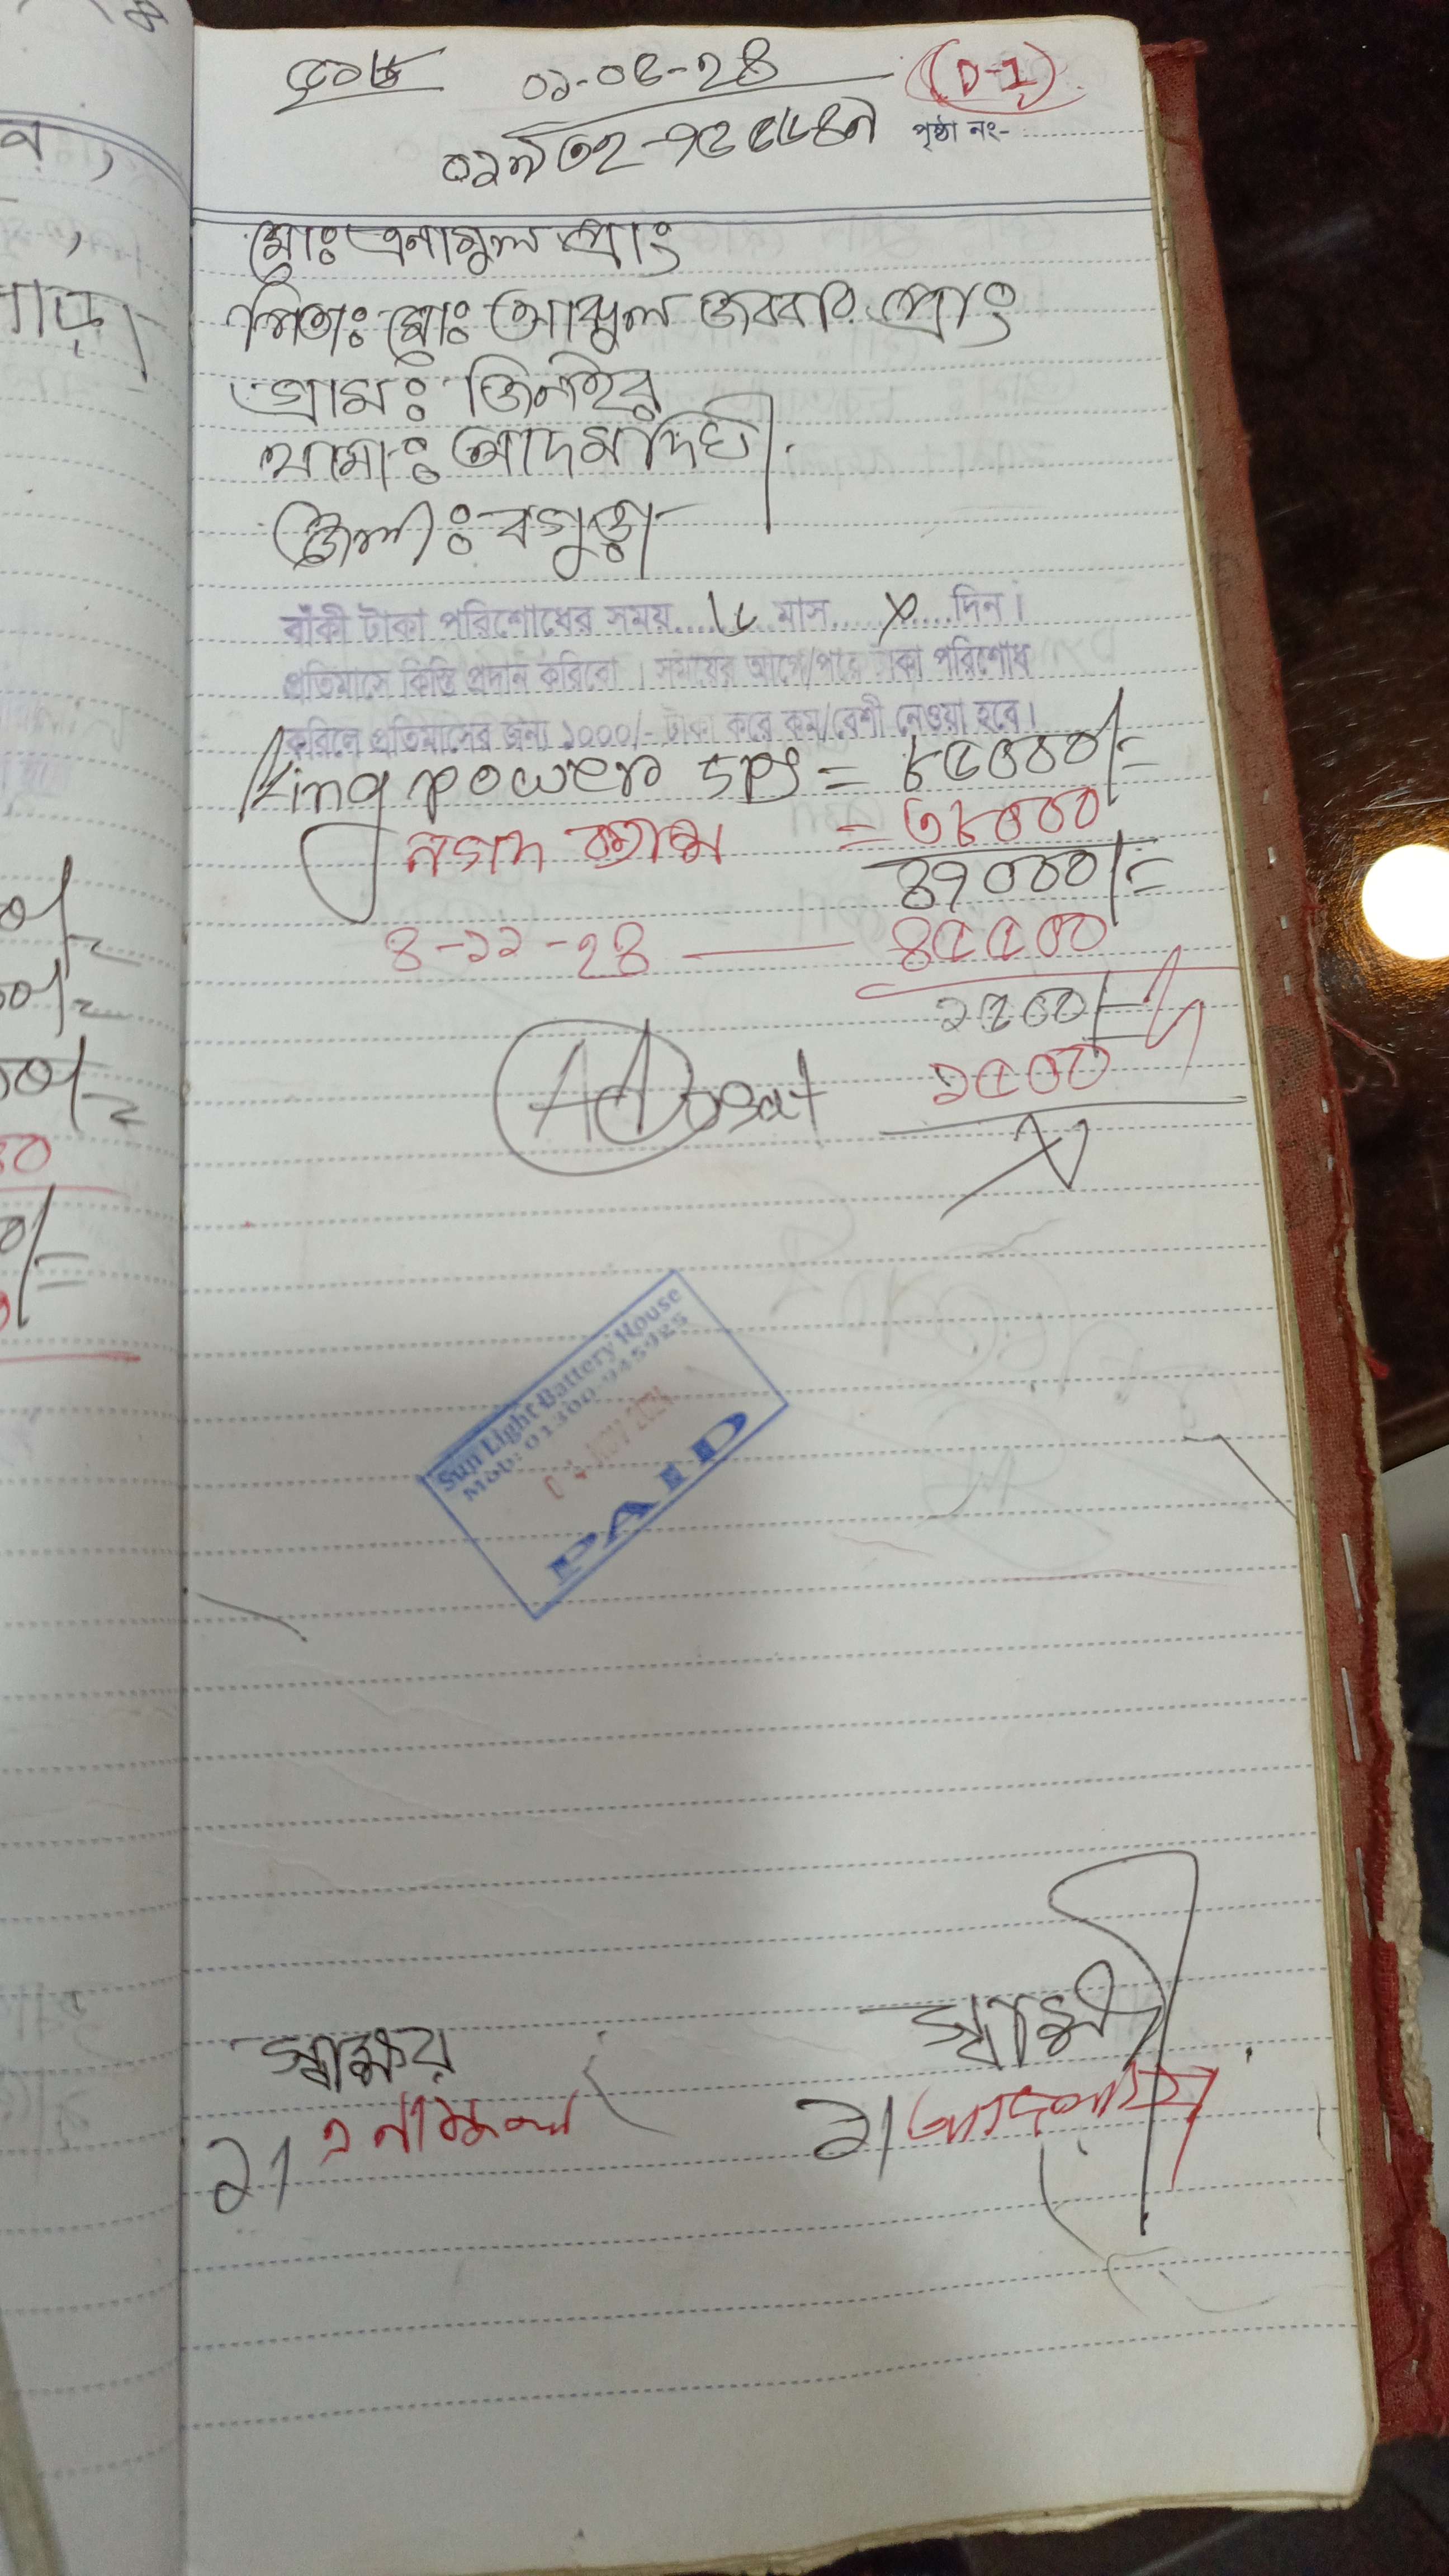 ৫০৮ ০১-০৫-২৪ (D-1)
পৃষ্ঠা নং-
মোঃ এনামুল প্রাং
পিতাঃ মোঃ আব্দুল জববার প্রাং
গ্রামঃ জিনইর
থানাঃ আদমদিঘী
জেলাঃ বগুড়া
বাঁকী টাকা পরিশোধের সময়....৬....মাস....X....দিন।
প্রতিমাসে কিস্তি প্রদান করিবো। সময়ের আগে/পরে টাকা পরিশোধ
করিলে প্রতিমাসের জন্য ১০০০/- টাকা করে কম/বেশী নেওয়া হবে।
King power 5ps = ৮৫০০০/=
নগদ জমা = ৩৮০০০
৪৭০০০/=
৪-১১-২৪ — ৪৫৫০০
১৫০০/=
১৫০০
X
Sun Light Battery House
Mob: 01300 945925
04 NOV 2024
PAID
স্বাক্ষর
১। এনামুল
স্বাক্ষী
১।